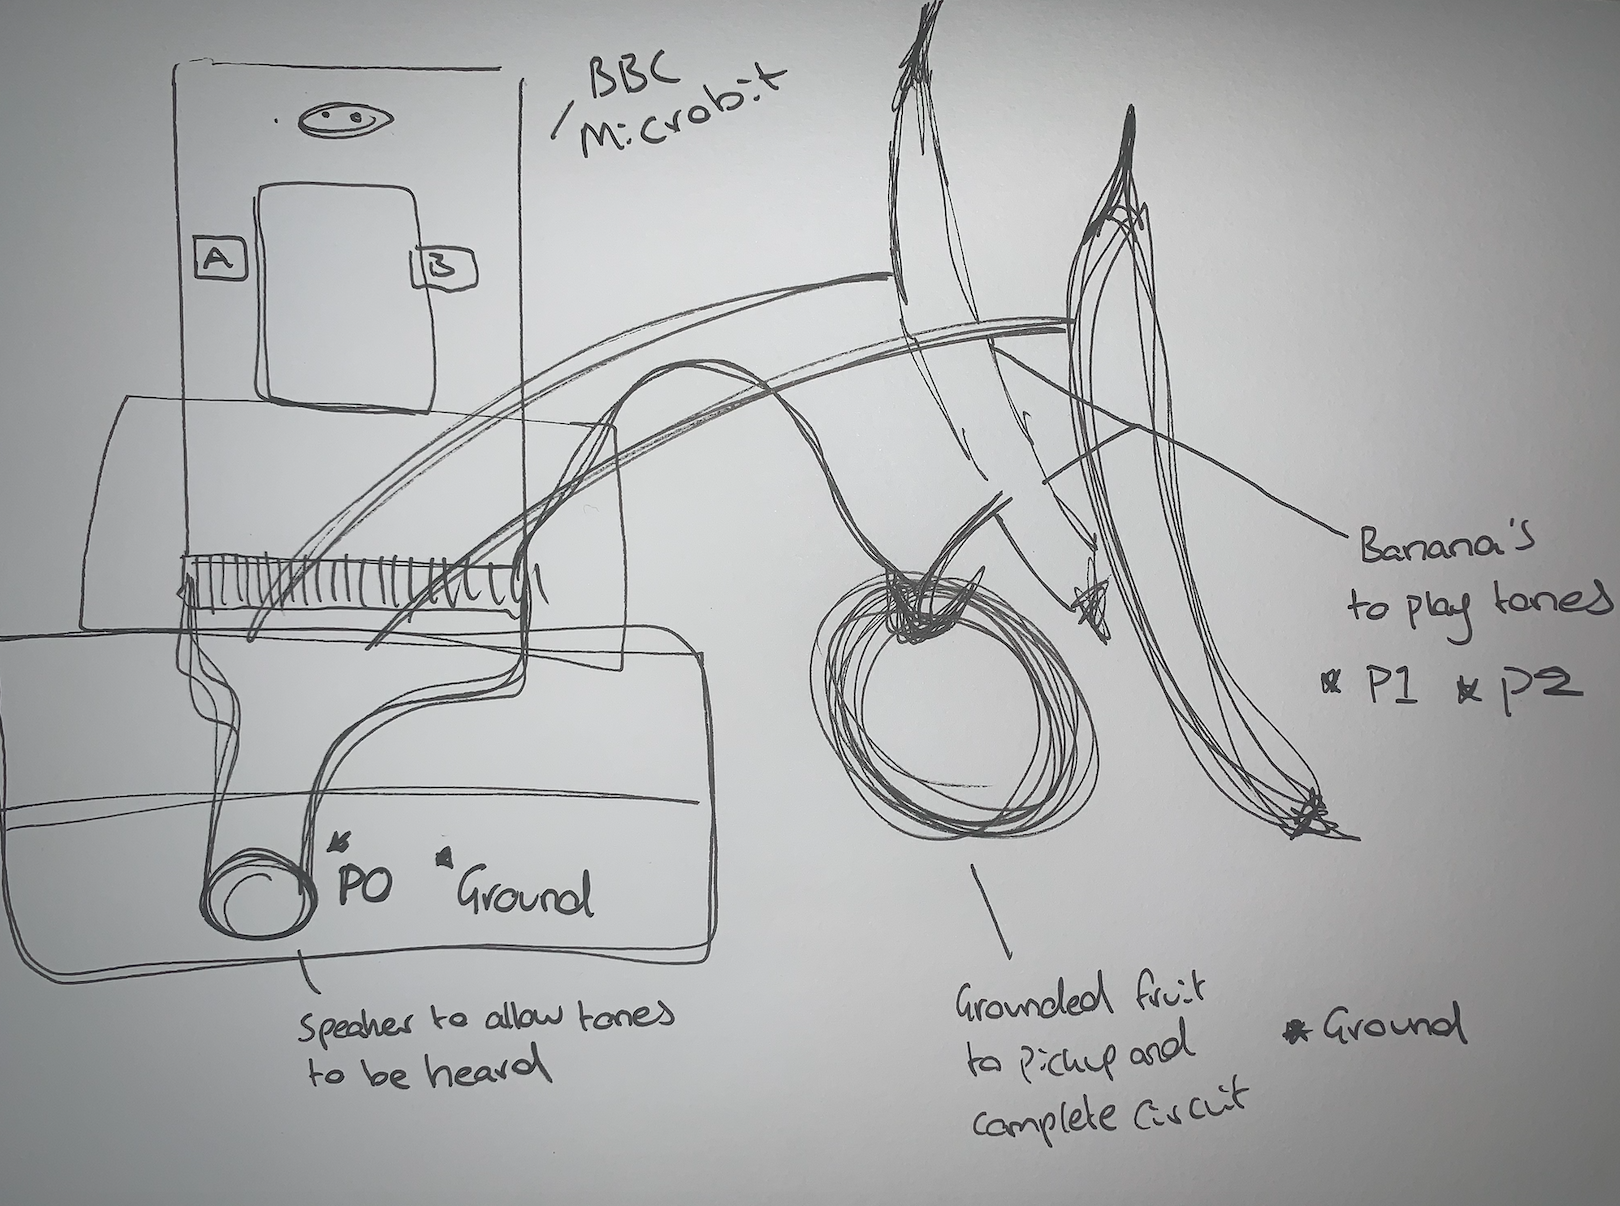 BBC
Microbit
A
B
Banana's
to play tones
* P1 * P2
* P0 * Ground
Speaker to allow tones
to be heard
Grounded fruit
to pickup and
complete circuit
* Ground